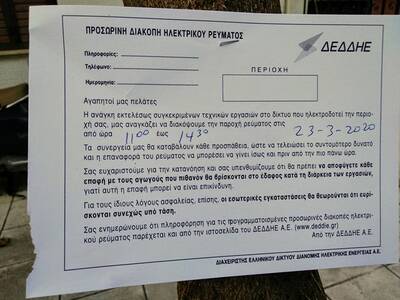 ΠΡΟΣΩΡΙΝΗ ΔΙΑΚΟΠΗ ΗΛΕΚΤΡΙΚΟΥ ΡΕΥΜΑΤΟΣ
ΔΕΔΔΗΕ
Πληροφορίες:
Τηλέφωνο:
Ημερομηνία:
ΠΕΡΙΟΧΗ
Αγαπητοί μας πελάτες
Η ανάγκη εκτελέσεως συγκεκριμένων τεχνικών εργασιών στο δίκτυο που ηλεκτροδοτεί την περιο-
χή σας, μας αναγκάζει να διακόψουμε την παροχή ρεύματος στις 23-3-2020
από ώρα 11⁰⁰ εως 14³⁰
Τα συνεργεία μας θα καταβάλουν κάθε προσπάθεια, ώστε να τελειώσει το συντομότερο δυνατό
και η επαναφορά του ρεύματος να μπορέσει να γίνει ίσως και πριν από την πιο πάνω ώρα.
Σας ευχαριστούμε για την κατανόηση και σας υπενθυμίζουμε ότι θα πρέπει να αποφύγετε κάθε
επαφή με τους αγωγούς που πιθανόν θα βρίσκονται στο έδαφος κατά τη διάρκεια των εργασιών,
γιατί αυτή η επαφή μπορεί να είναι επικίνδυνη.
Για τους ίδιους λόγους ασφαλείας, επίσης, οι εσωτερικές εγκαταστάσεις θα θεωρούνται ότι ευρί-
σκονται συνεχώς υπό τάση.
Σας ενημερώνουμε ότι πληροφόρηση για τις προγραμματισμένες προσωρινές διακοπές ηλεκτρι-
κού ρεύματος παρέχεται και από την ιστοσελίδα του ΔΕΔΔΗΕ Α.Ε. (www.deddie.gr)
Από την ΔΕΔΔΗΕ Α.Ε.
ΔΙΑΧΕΙΡΙΣΤΗΣ ΕΛΛΗΝΙΚΟΥ ΔΙΚΤΥΟΥ ΔΙΑΝΟΜΗΣ ΗΛΕΚΤΡΙΚΗΣ ΕΝΕΡΓΕΙΑΣ Α.Ε.